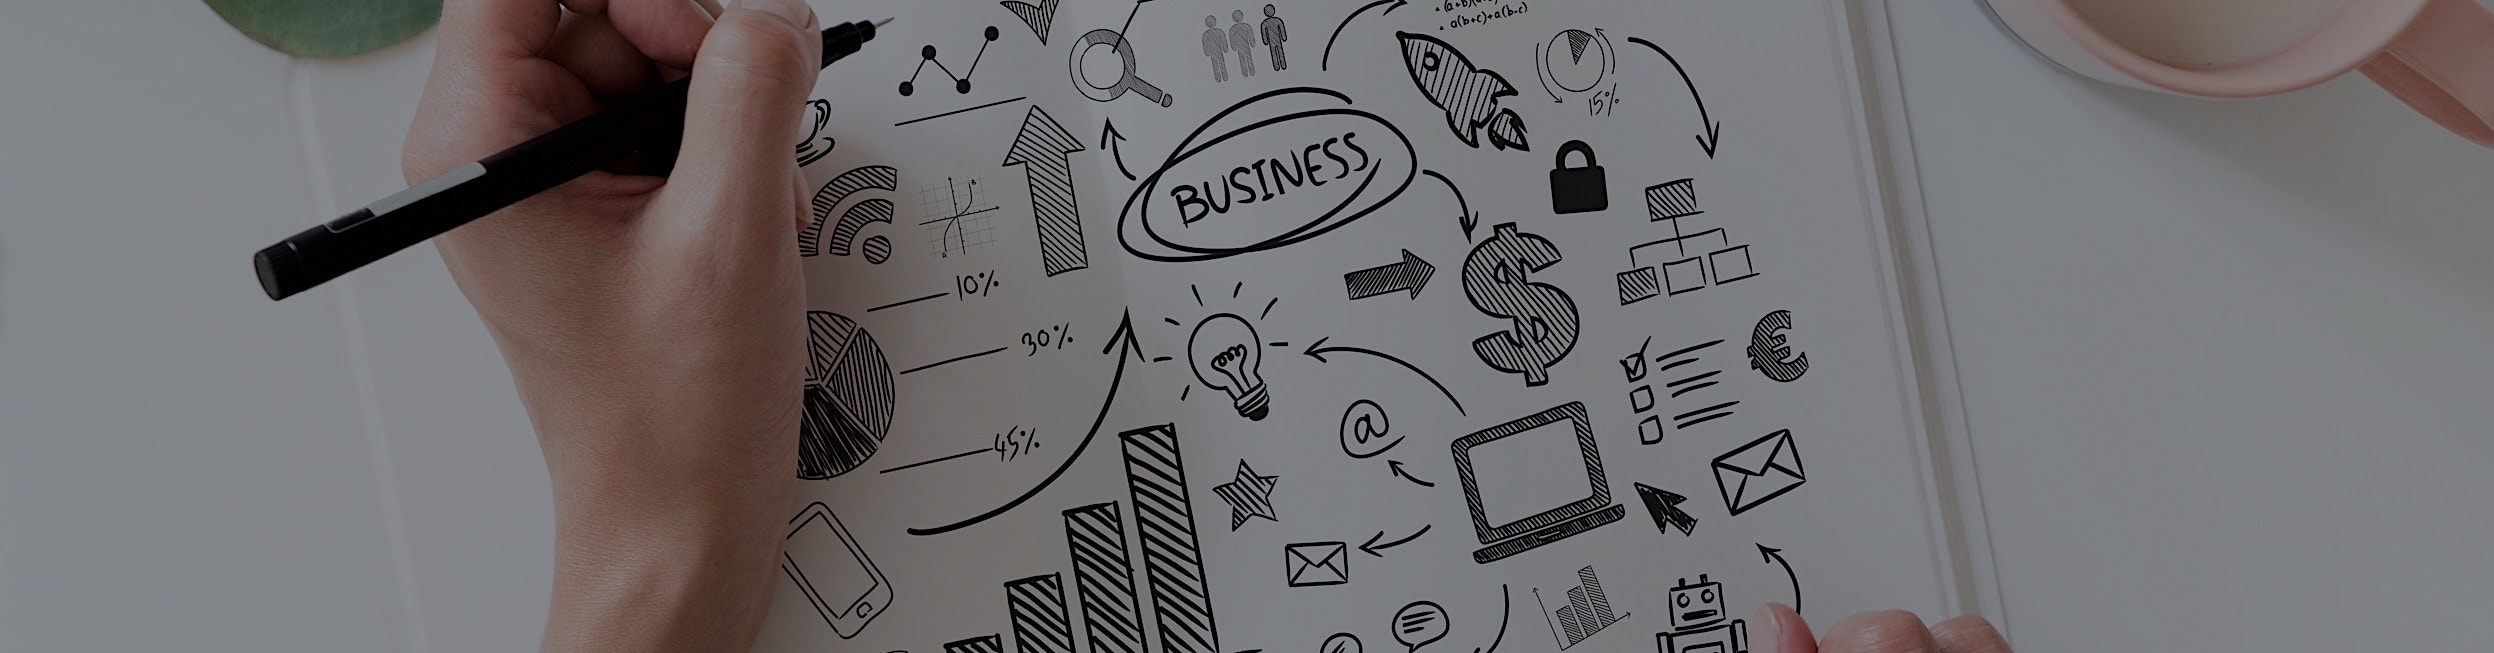 a(b+c)+a(b-c)
15%
BUSINESS
10%
$
30%
€
45%
@